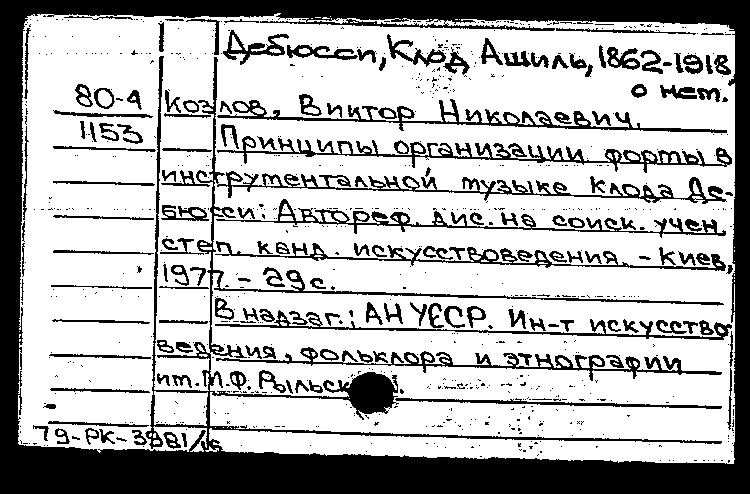 Дебюсси, Клод Ашиль, 1862-1918,
о нем.
80-4 Козлов, Виктор Николаевич.
1153 Принципы организации формы в
инструментальной музыке Клода Де-
бюсси: Автореф. дис. на соиск. учен.
степ. канд. искусствоведения. - Киев,
1977. - 29 с.
В надзаг.: АН УССР. Ин-т искусство-
ведения, фольклора и этнографии
им. М.Ф. Рыльск
79-РК-3981/